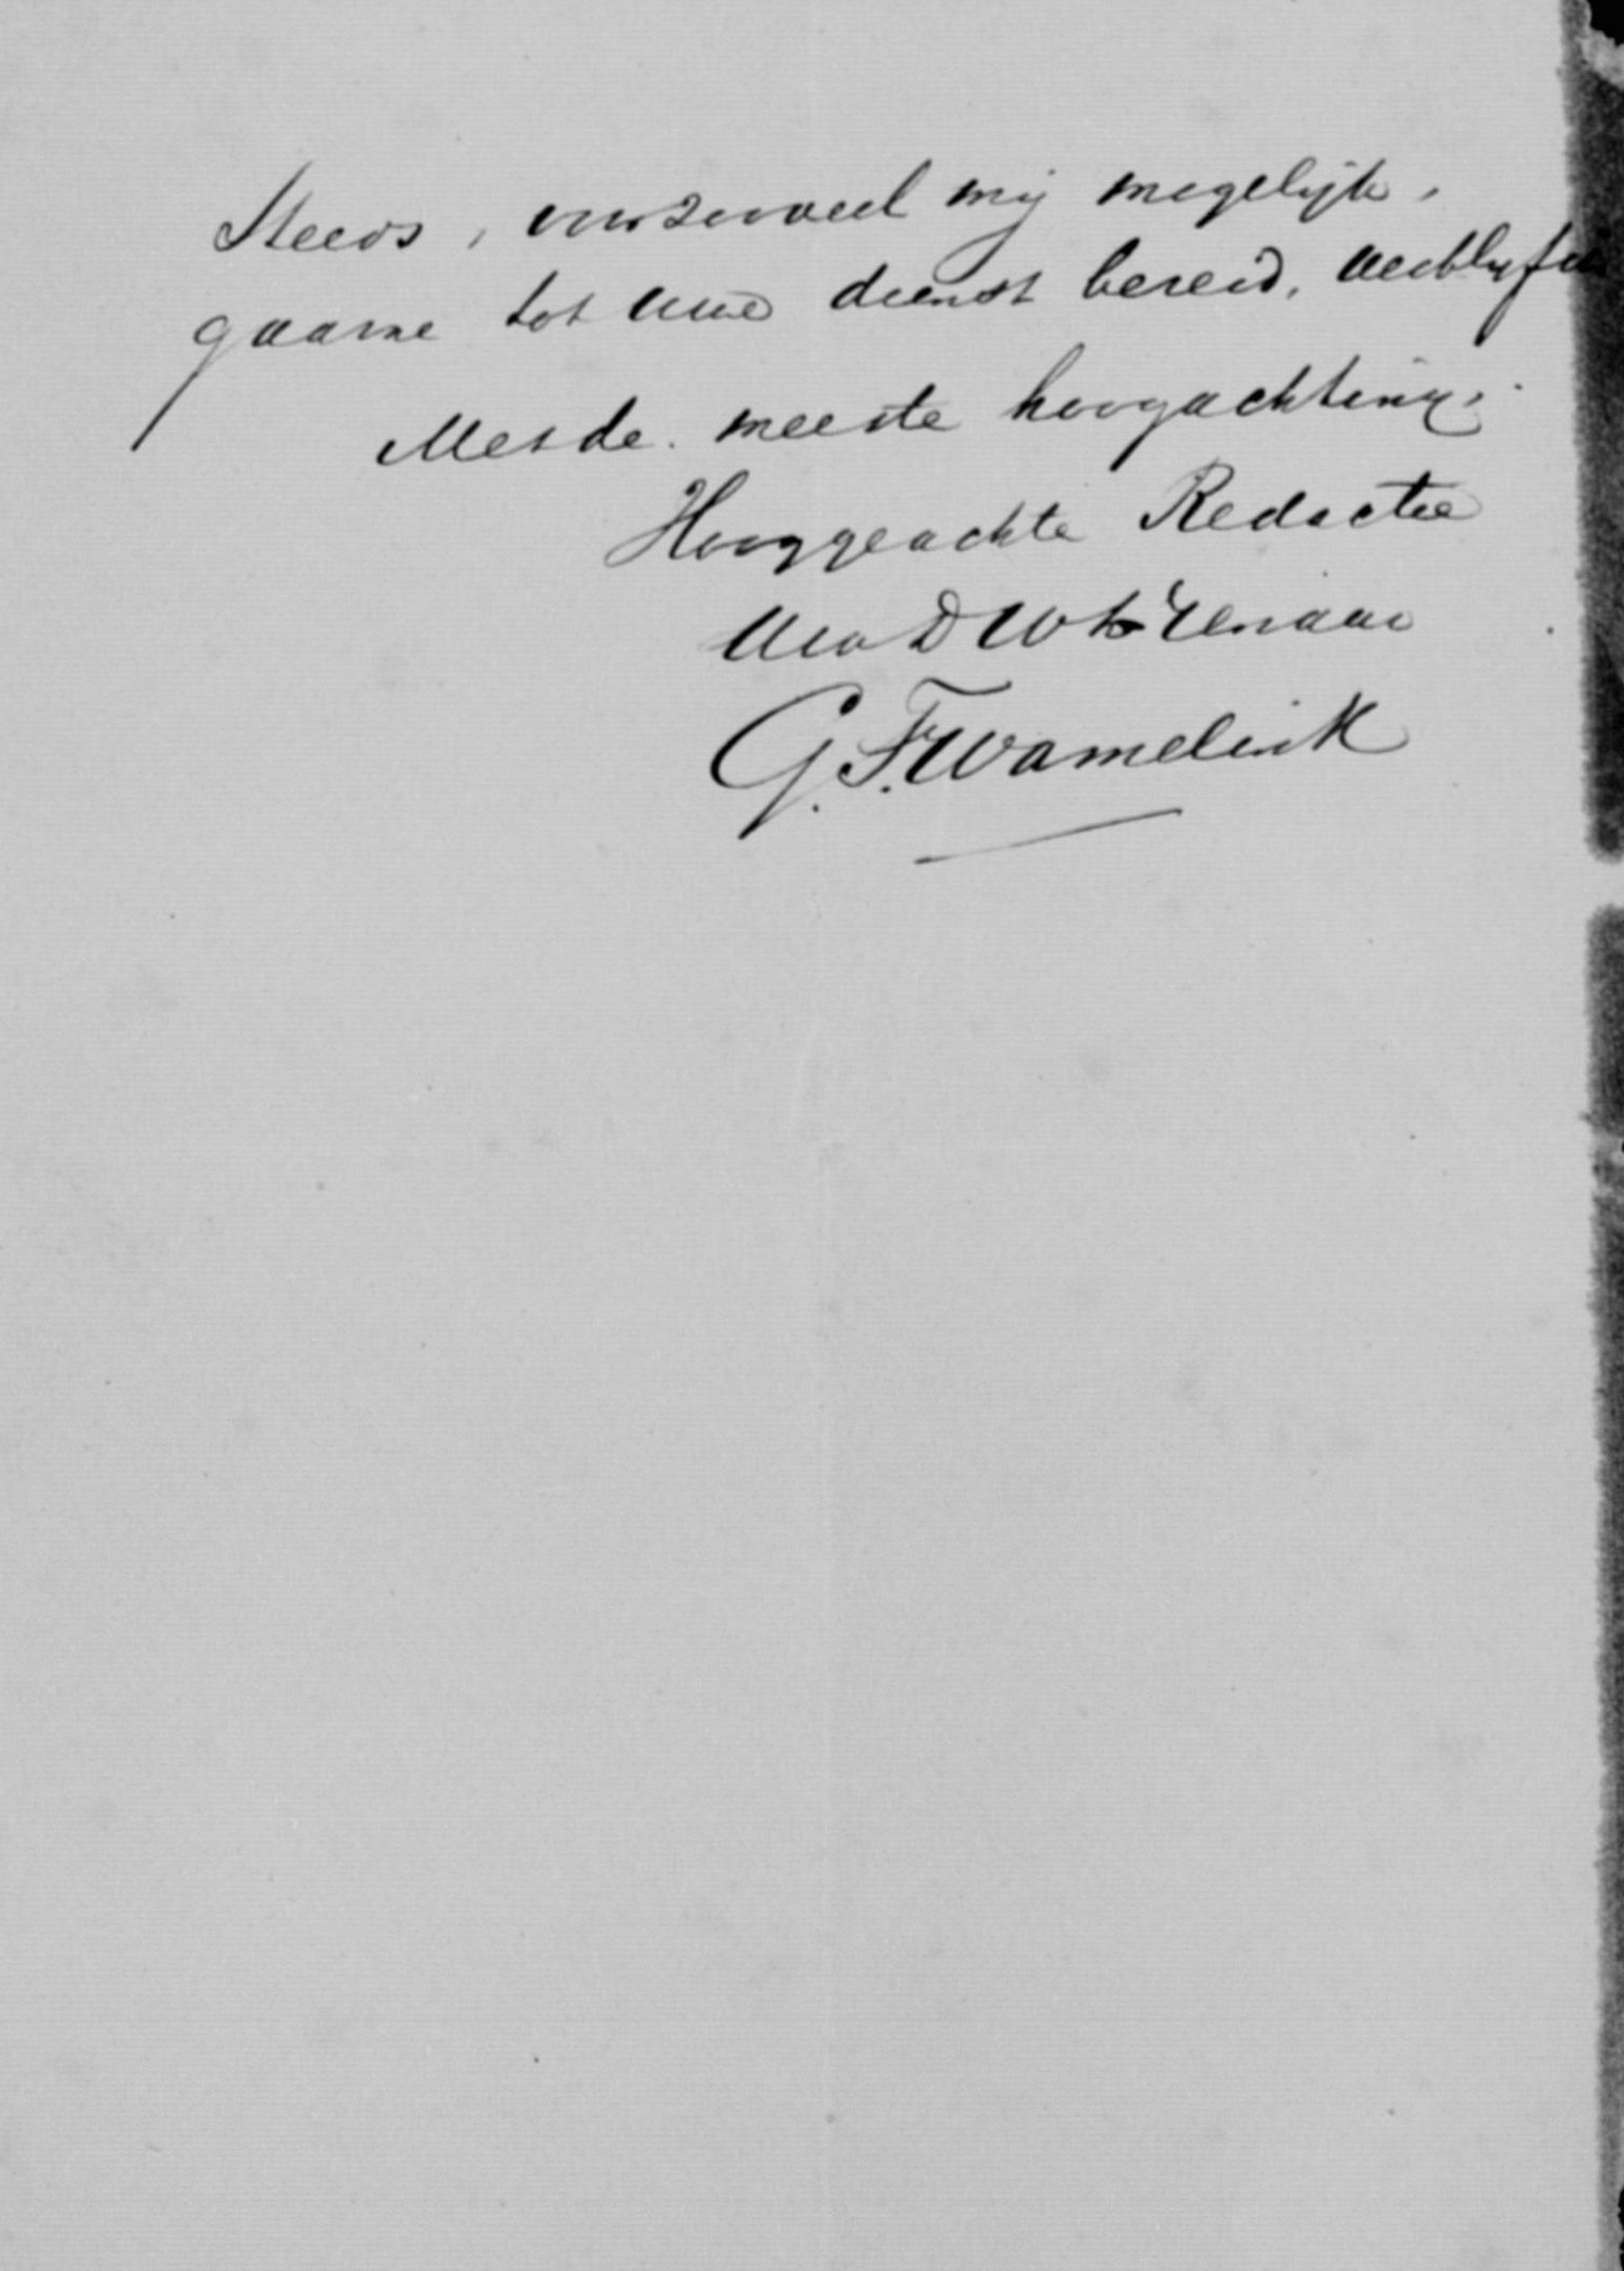 Steeds, voorzooveel mij mogelijk,
gaarne tot Uwe dienst bereid, verblijf
Met de meeste hoogachting,
Hooggeachte Redactie
Uw D W Dienaar
G. F. Wamelink